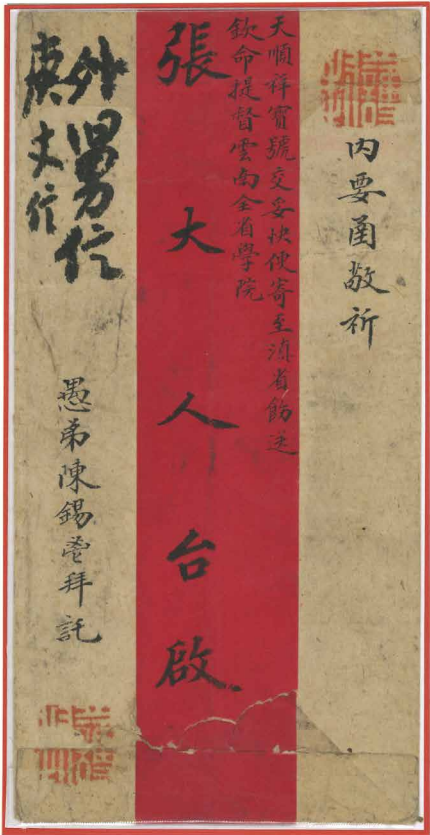 内要圅敬祈
天順祥寳號交妥快便寄至滇省飭送
欽命提督雲南全省學院
張大人台啟
外舅信
庚丈信
愚弟陳錫鬯拜託